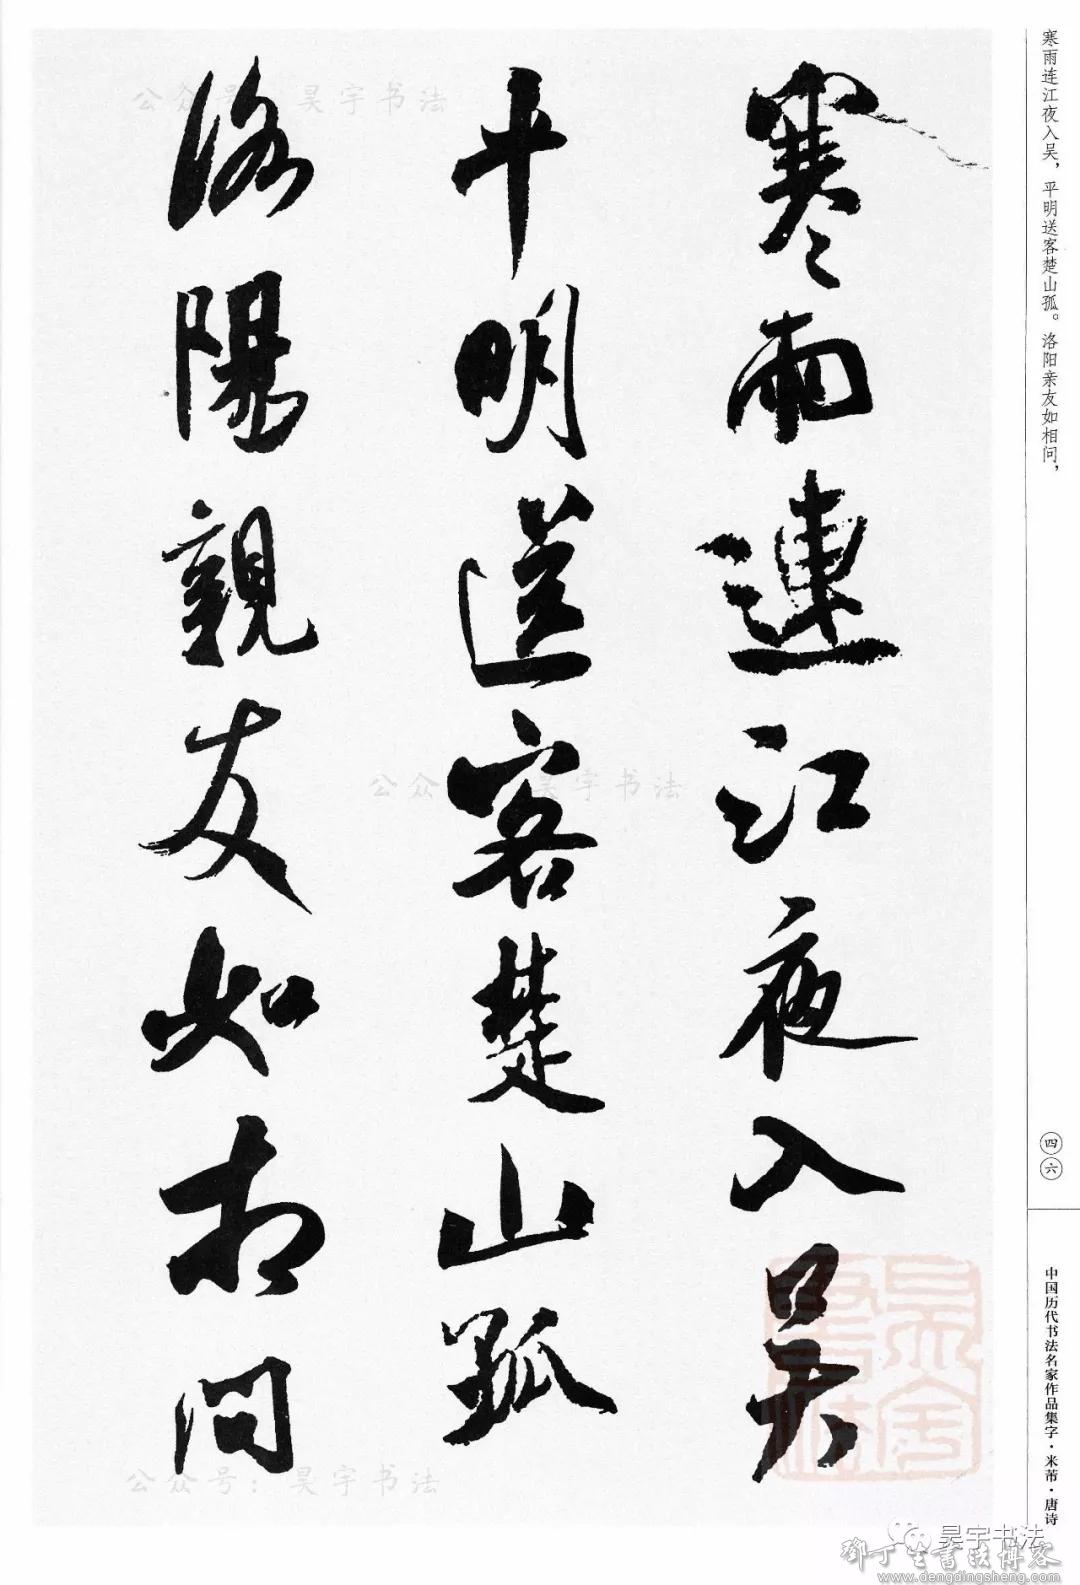 寒雨連江夜入吴
平明送客楚山孤
洛陽親友如相問
寒雨连江夜入吴，平明送客楚山孤。洛阳亲友如相问，
四六
中国历代书法名家作品集字·米芾·唐诗
公众号：昊宇书法
公众号：昊宇书法
公众号：昊宇书法
昊宇书法
昊宇书法
鄧丁生書法博客
www.dengdingsheng.com